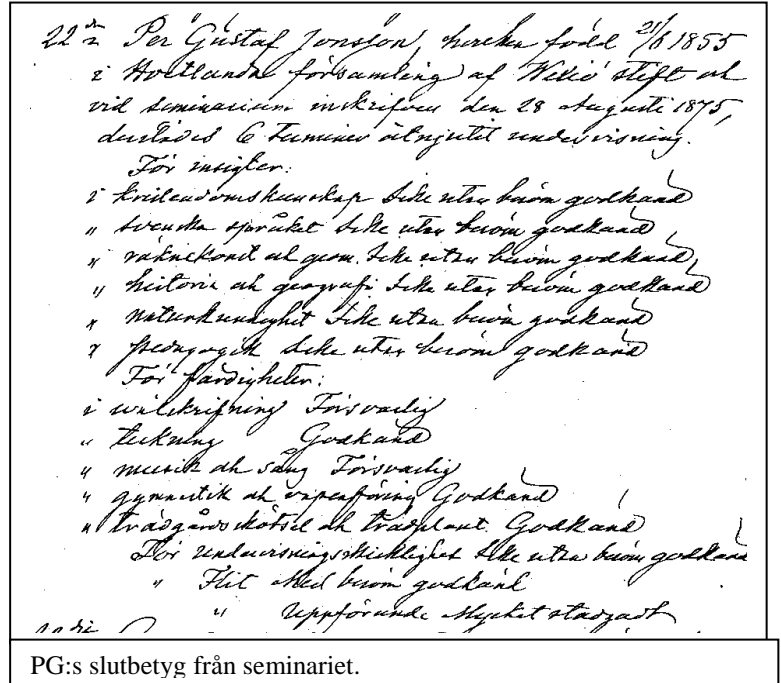 22 Per Gustaf Jonsson, hvilken född 21/8 1855
i församling af Wexiö stift och
vid seminarium inskrifven den 28 Augusti 1875,
derstädes 6 Terminer åtnjutit undervisning.
För insigter:
i kristendomskunskap Icke utan beröm godkänd
" svenska språket Icke utan beröm godkänd
" räknekonst och geom. Icke utan beröm godkänd
" historia och geografi Icke utan beröm godkänd
" naturkunnighet Icke utan beröm godkänd
" pedagogik Icke utan beröm godkänd
För färdigheter:
i välskrifning Försvarlig
" teckning Godkänd
" musik och sång Försvarlig
" gymnastik och vapenföring Godkänd
" trädgårdsskötsel och trädplant. Godkänd
För undervisningsskicklighet Icke utan beröm godkänd
" Flit Med beröm godkänd
" Uppförande Mycket stadgadt
PG:s slutbetyg från seminariet.